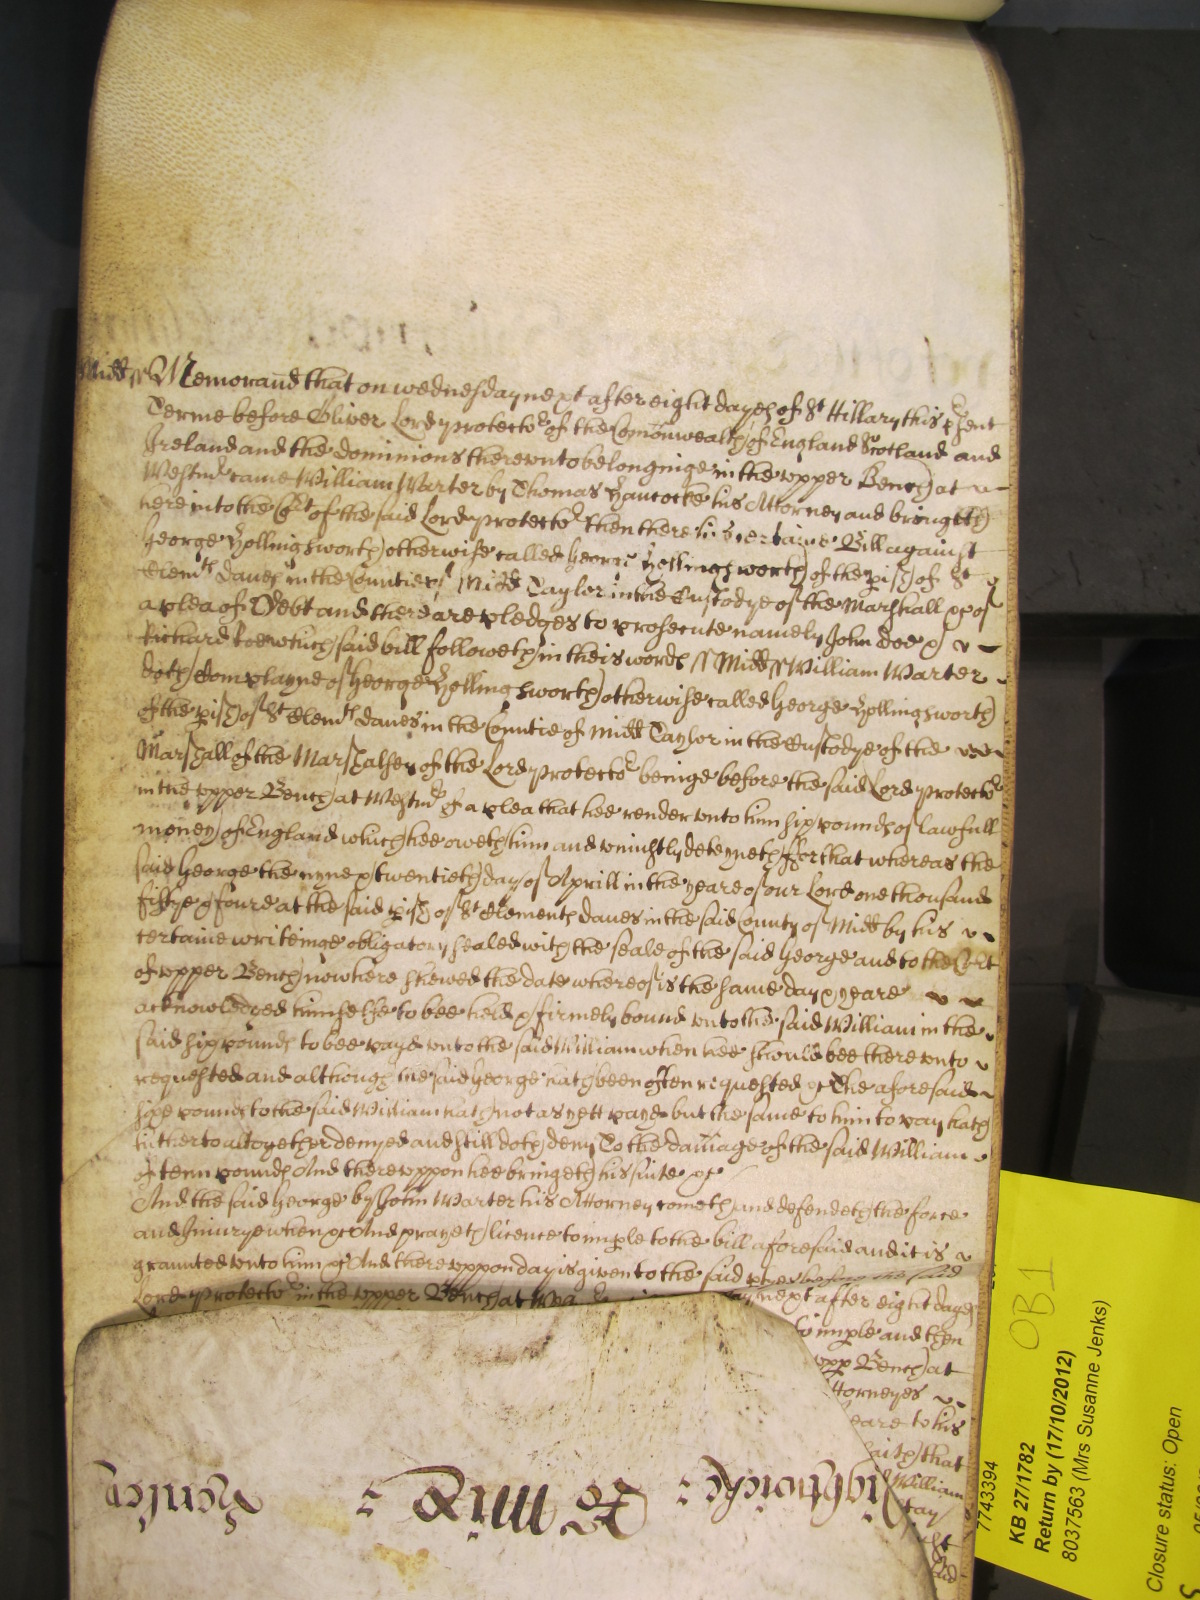 Midd ss Memorand that on wednesday next after eight dayes of St Hillary this psent
Terme before Oliver Lord protector of the Comonwealth of England Scotland and
Ireland and the dominions thereunto belonginge in the upper Bench at
Westmr came William Warter by Thomas Hancocke his Attorney and bringeth
here into the Crt of the said Lord protector then there his certaine Bill against
George Hollingsworth otherwise called George Hollingsworth of the pish of St
Clemts Danes in the Countie of Midd Taylor in the Custodye of the Marshall &c of
a plea of Debt and there are pledges to prosecute namely John Doe &
Richard Roe which said bill followeth in theis words ss Midd ss William Warter
doth Complayne of George Hollingsworth otherwise called George Hollingsworth
of the pish of St Clemts Danes in the Countie of Midd Taylor in the Custodye of the
Marshall of the Marshalsey of the Lord protector beinge before the said Lord protector
in the upper Bench at Westmr of a plea that hee render unto him six pounds of lawfull
money of England which hee oweth him and uniustly deteyneth ffor that whereas the
said George the nyne & twentieth day of Aprill in the yeare of our Lord one thousand
fiftye & foure at the said pish of St Clements Danes in the said County of Midd by his
certaine writeinge obligatory sealed with the seale of the said George and to the Crt
of upper Bench now here shewed the date whereof is the same day & yeare
acknowledged himselfe to bee held & firmely bound unto the said William in the
said six pounds to bee payd unto the said William when hee should bee thereunto
requested and although the said George hath been often requested &c The aforesaid
sixe pounds to the said William hath not as yett payd but the same to him to pay hath
hitherto altogether denyed and still doth deny To the damage of the said William
of tenn pounds And thereuppon hee bringeth his suite &c
And the said George by John Warter his Attorney cometh and defendeth the force
and Iniurye when &c And prayeth licence to imple to the bill aforesaid and it is
graunted unto him &c And thereuppon day is given to the said ptyes before the said
Lord protector in the upper Bench at next after eight dayes
to imple and then
upp Bench at
Attorneyes
to his
that
William
Midd
7743394
KB 27/1782
OB1
Return by (17/10/2012)
8037563 (Mrs Susanne Jenks)
Closure status: Open